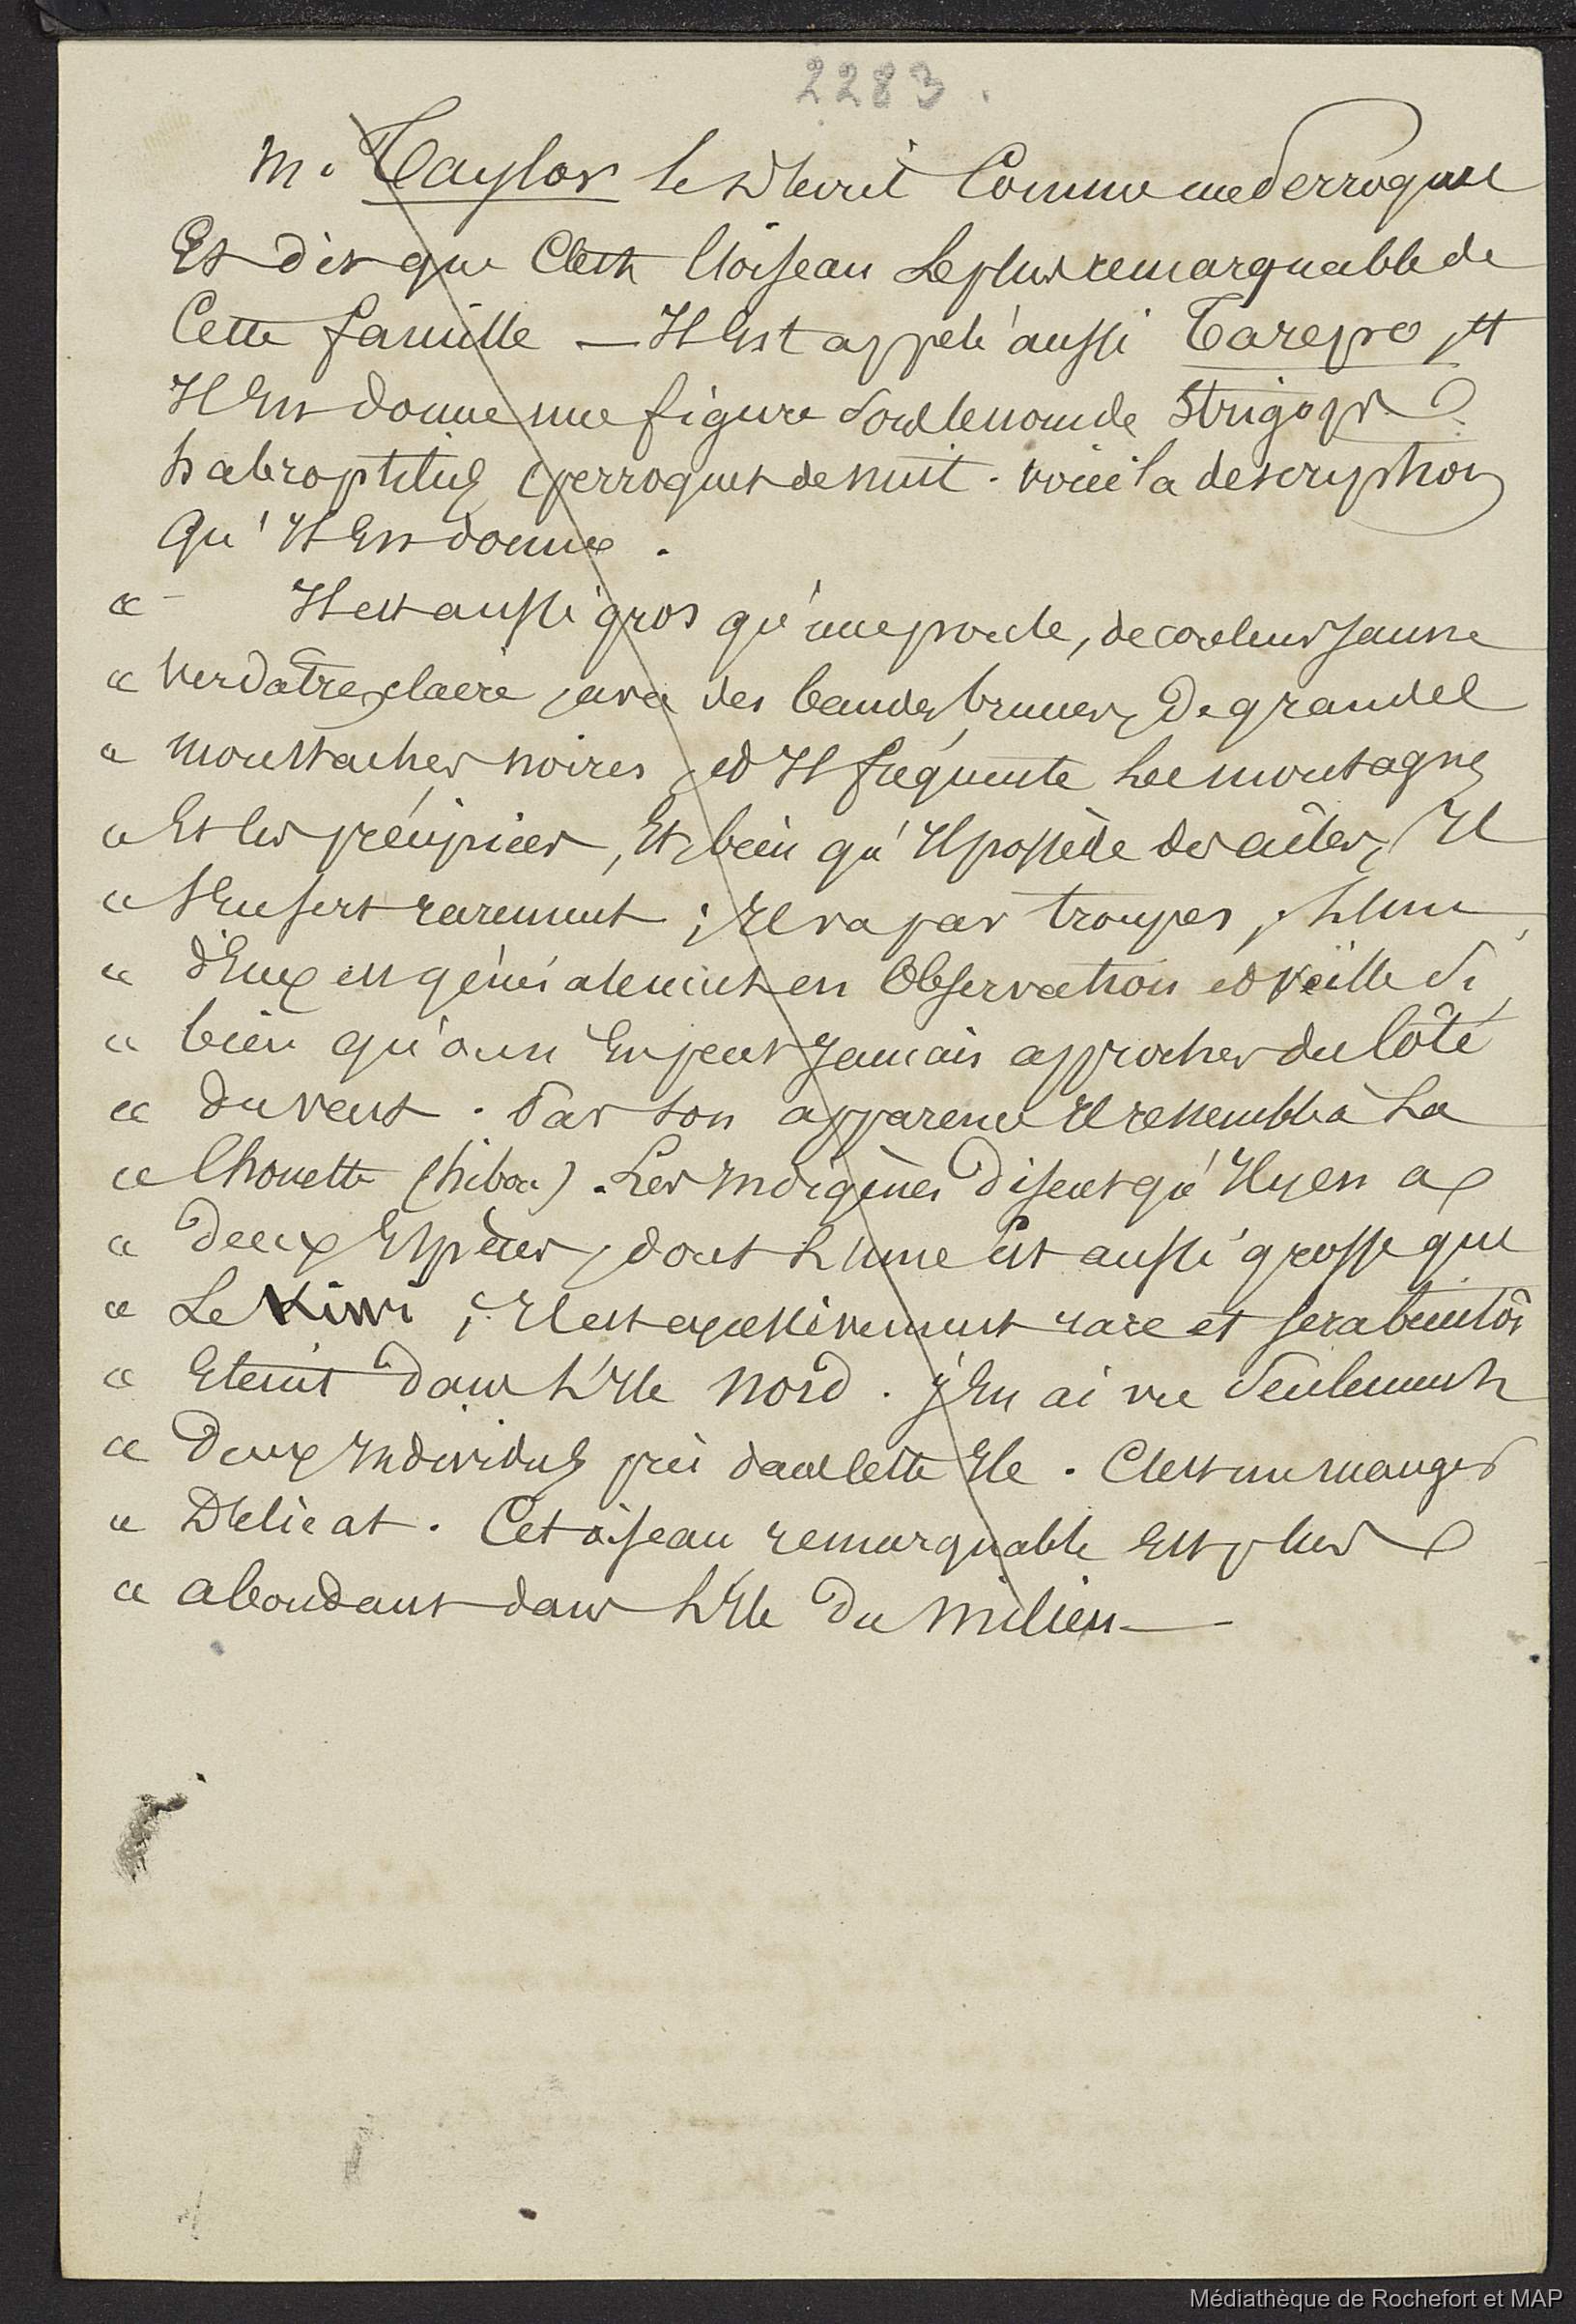 2283.
M. Taylor le Décrit Comme une Perroquet
Et dit que C'est l'oiseau Le plus remarquable de
Cette famille — Il Est appelé aussi Tarepo, et
Il En donne une figure Sous le nom de Strigops
habroptilus (perroquet de nuit. voici la description
Qu'Il En donne.
« Il est aussi gros qu'une poule, de couleur Jaune
« Verdatre claire, avec des bandes brunes, De grandes
« Moustaches noires, et Il fréquente Les montagnes
« Et les précipices, Et bien qu'Il possède des ailes, Il
« S'En sert rarement ; Il va par troupes, L'un
« d'Eux est généralement en Observation et veille si
« bien qu'on n'En peut Jamais approcher du Côté
« Du vent. Par son apparence Il ressemble à La
« Chouette (hibou). Les Indigènes Disent qu'Il y en a
« Deux Espèces, dont L'une Est aussi grosse que
« Le Kiwi ; Il est excessivement rare et sera bientôt
« Eteint Dans L'Ile Nord. J'En ai vu Seulement
« Deux Individus pris dans Cette Ile. C'est un manger
« Délicat. Cet oiseau remarquable Est plus
« abondant dans L'Ile Du Milieu —
Médiathèque de Rochefort et MAP